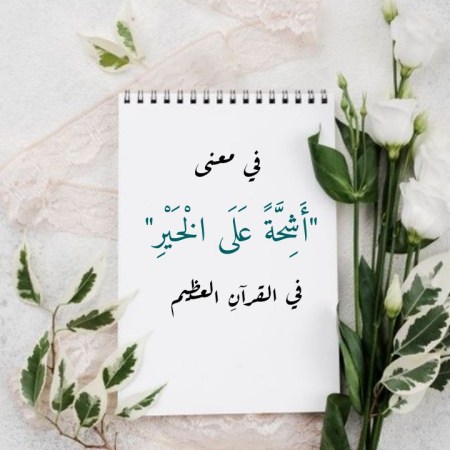 في معنى
"أَشِحَّةً عَلَى الْخَيْرِ"
في القرآنِ العظيم